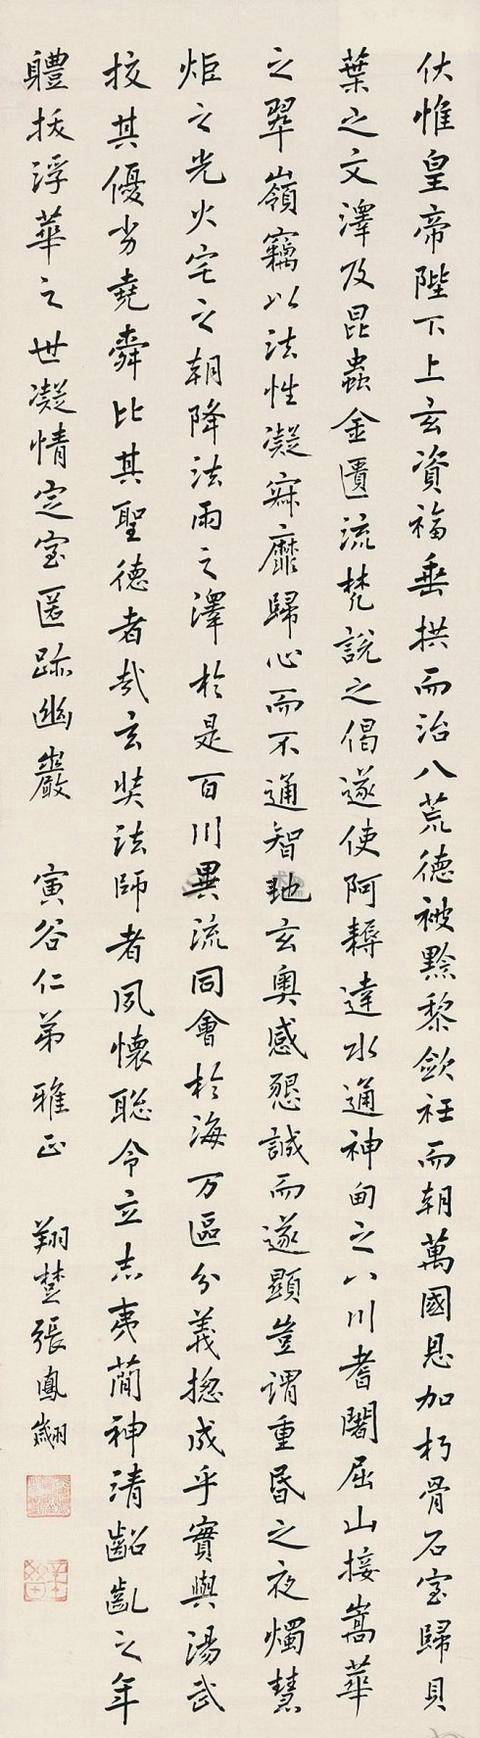 伏惟皇帝陛下上玄資福垂拱而治八荒德被黔黎歛衽而朝萬國恩加朽骨石室歸貝
葉之文澤及昆蟲金匱流梵說之偈遂使阿耨達水通神甸之八川耆闍崛山接嵩華
之翠嶺竊以法性凝寂靡歸心而不通智地玄奧感懇誠而遂顯豈謂重昏之夜燭慧
炬之光火宅之朝降法雨之澤於是百川異流同會於海万區分義揔成乎實與湯武
挍其優劣堯舜比其聖德者哉玄奘法師者夙懷聡令立志夷蕳神清齠齓之年
軆拔浮華之世凝情定室匿跡幽巖 寅谷仁弟雅正 翔楚張鳳翽